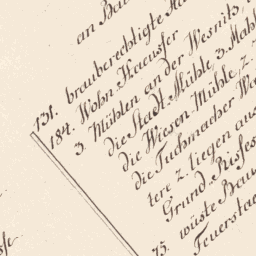 an Bau
131. brauberechtigte Ha
184. Wohn. Haeusser
3. Mühlen an der Wesnits,
die Stadt. Mühle, 3. Mahl
die Wiesen. Mühle, 2.
die Tuchmacher Wa
tere 2. liegen aus
Grund. Risses
wüste Bau
75. Feuerstae